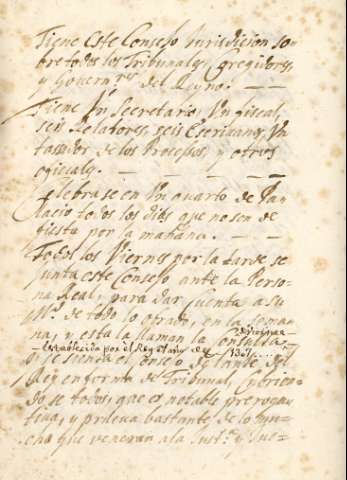 Tiene este Consejo Jurisdicion so-
bre todos los Tribunales, Corregidores,
y Govern.res del Reyno. — —
Tiene Un Secretario, Un fiscal,
seis Relatores, seis Escrivanos, Un
tassador de los Processos, y otros
oficiales. — — — —
Celebrase en Un quarto de Pa-
lacio todos los dias que no son de
fiesta por la mañana. — —
Todos los Viernes por la tarde se
junta este Consejo, ante la Perso-
na Real, para dar quenta a Su
Mg.d de todo lo obrado, en la sema-
na, y esta llaman la Consulta,
establecida por el Rey el año de 1367
sientase el Consejo delante del
Rey en forma de Tribunal, Cubrien-
dose todos, que es notable preroga-
tiva, y prueva bastante de lo mu-
cho que veneran a la Just.a y Jue-